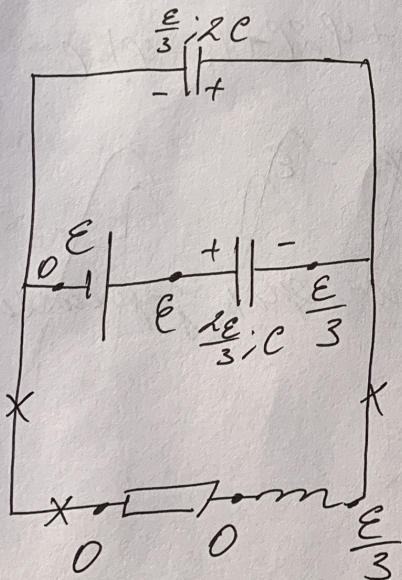 ε/3 ; 2C
- +
ε
+ -
0
ε
2ε/3 ; C
ε/3
0
0
ε/3